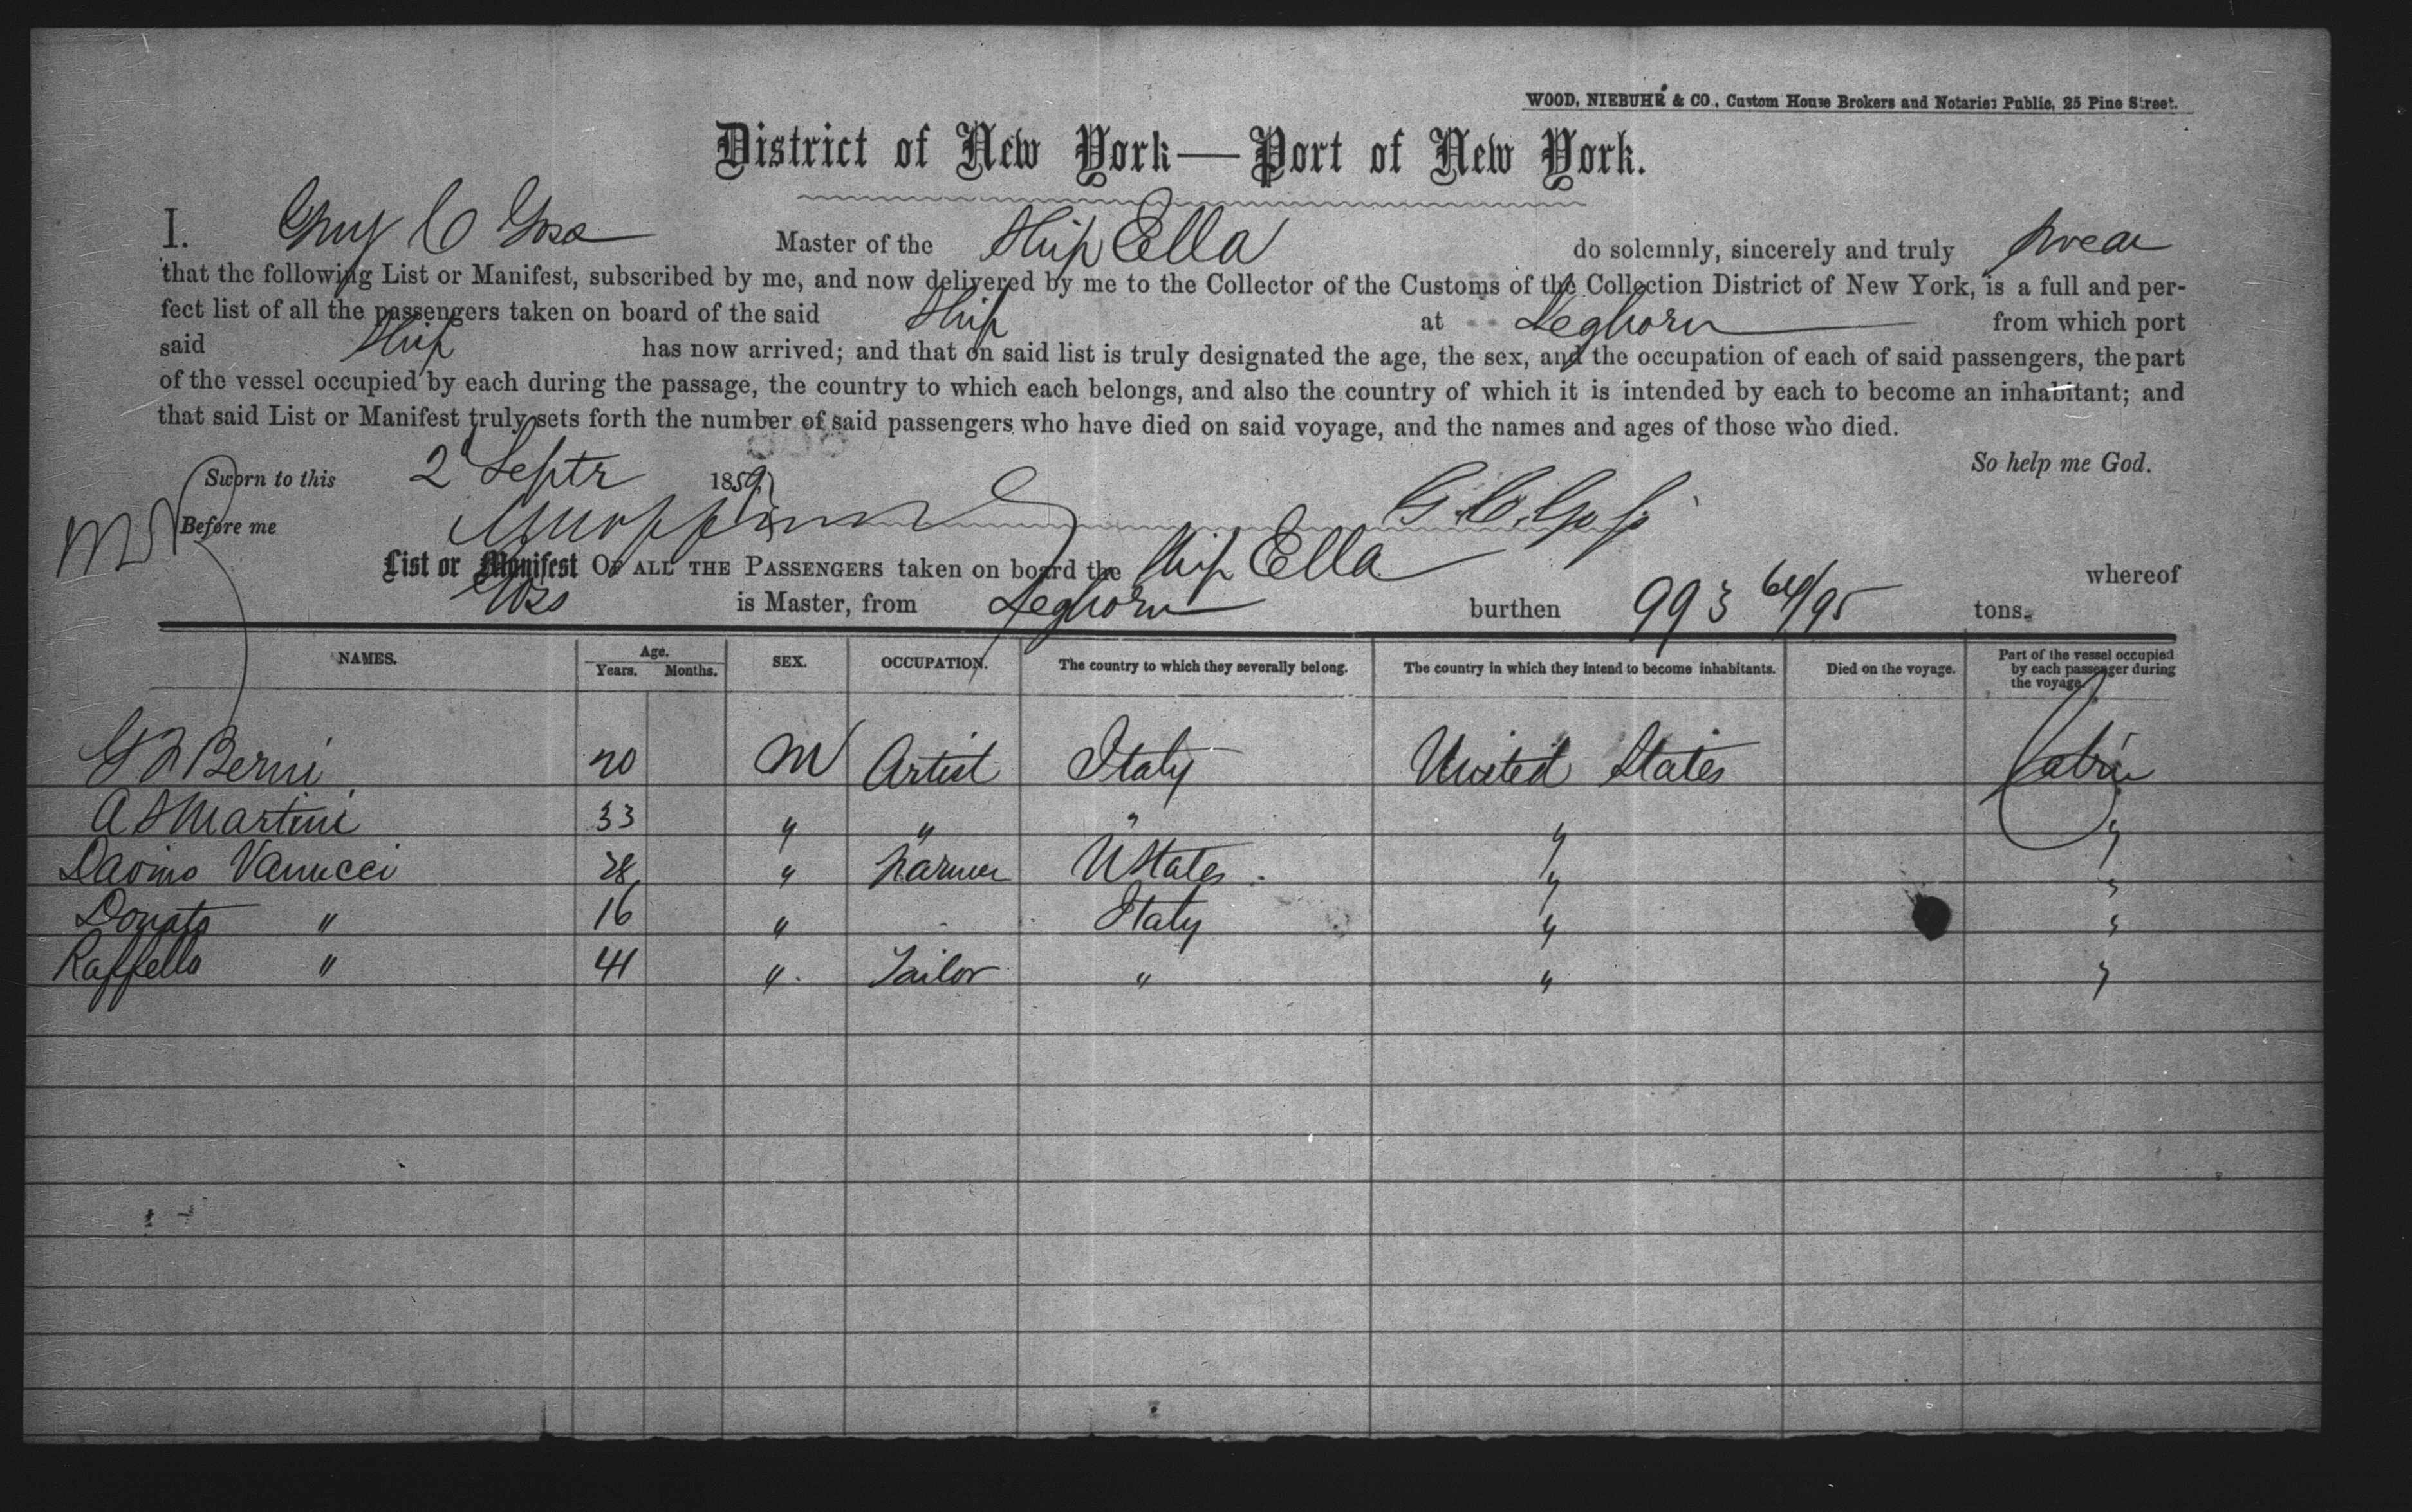 WOOD, NIEBUHR & CO., Custom House Brokers and Notaries Public, 25 Pine Street.
District of New York — Port of New York.
I. Guy C Goss Master of the Ship Ella do solemnly, sincerely and truly swear
that the following List or Manifest, subscribed by me, and now delivered by me to the Collector of the Customs of the Collection District of New York, is a full and per-
fect list of all the passengers taken on board of the said Ship at Leghorn from which port
said Ship has now arrived; and that on said list is truly designated the age, the sex, and the occupation of each of said passengers, the part
of the vessel occupied by each during the passage, the country to which each belongs, and also the country of which it is intended by each to become an inhabitant; and
that said List or Manifest truly sets forth the number of said passengers who have died on said voyage, and the names and ages of those who died.
So help me God.
Sworn to this 2 Septr 1859
Before me G. C. Goss
List or Manifest OF ALL THE PASSENGERS taken on board the Ship Ella whereof
Goss is Master, from Leghorn burthen 993 64/95 tons.
NAMES. Age. Years. Months. SEX. OCCUPATION. The country to which they severally belong. The country in which they intend to become inhabitants. Died on the voyage. Part of the vessel occupied by each passenger during the voyage.
Berni 20 M Artist Italy United States Cabin
A S Martini 33 " " " " "
Davino Vanucci 28 " Farmer UStates. " "
Donato " 16 " Italy " "
Raffello " 41 " Tailor " " "